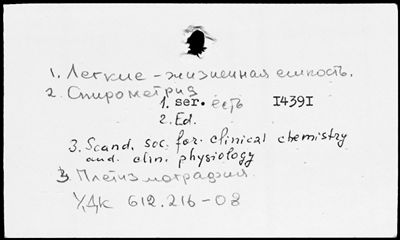 1. Легкие - жизненная емкость.
2. Спирометрия
1. ser. есть I439I
2. Ed.
3. Scand. soc. for. clinical chemistry
and. clin. physiology
3. Плетизмография
УДК 612.216-08